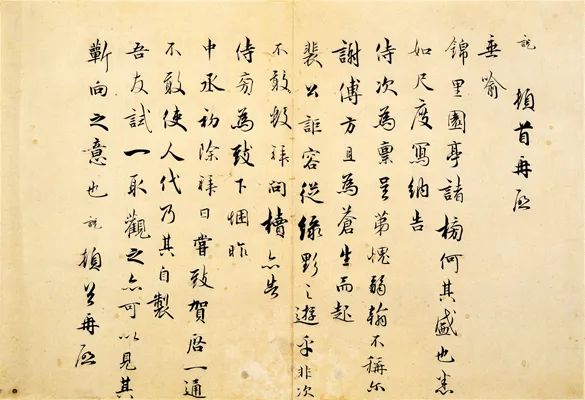 說 頓首再啟
垂喻
錦里園亭諸榜何其盛也悉
如尺度寫納告
侍次為稟呈第愧弱翰不稱尔
謝傅方且為蒼生而起
裴公詎容從綠野之遊乎非次
不敢數拜問牘亦告
侍旁為致下悃昨
中丞初除拜日嘗致賀啟一通
不敢使人代乃其自製
吾友試一取觀之亦可以見其
蘄向之意也 說 頓首再啟